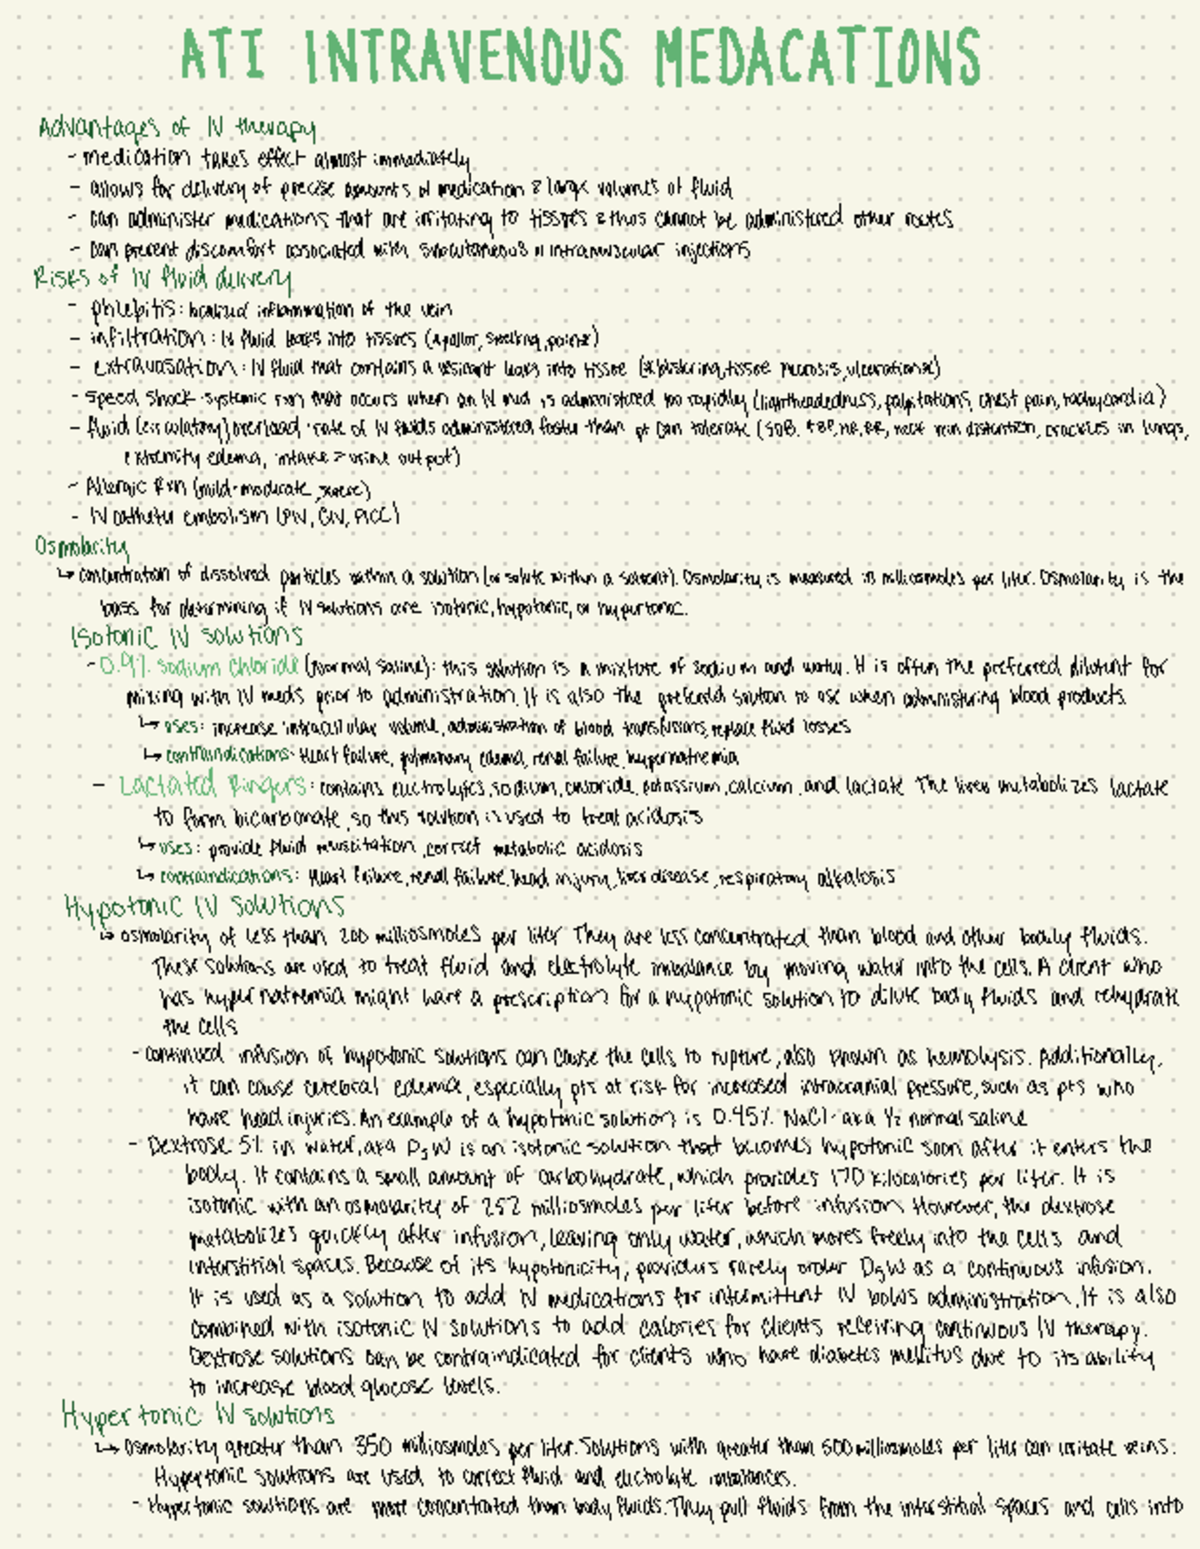 ATI INTRAVENOUS MEDACATIONS
Advantages of IV therapy
- medication takes effect almost immediately
- allows for delivery of precise amounts of medication & large volumes of fluid
- can administer medications that are irritating to tissues & thus cannot be administered other routes
- can prevent discomfort associated with subcutaneous or intramuscular injections
Risks of IV fluid delivery
- phlebitis: localized inflammation of the vein
- infiltration: IV fluid leaks into tissues (pallor, swelling, pain)
- extravasation: IV fluid that contains a vesicant leaks into tissue (blistering, tissue necrosis, ulcerations)
- Speed shock - systemic rxn that occurs when an IV med is administered too rapidly (lightheadedness, palpitations, chest pain, tachycardia)
- fluid (circulatory) overload - rate of IV fluids administered faster than pt can tolerate (SOB, ↑BP, HR, RR, neck vein distention, crackles in lungs,
extremity edema, intake > urine output)
- Allergic Rxn (mild-moderate, severe)
- IV catheter embolism (PIV, CIV, PICC)
Osmolarity
↳ concentration of dissolved particles within a solution (or solute within a solvent). Osmolarity is measured in milliosmoles per liter. Osmolarity is the
basis for determining if IV solutions are isotonic, hypotonic, or hypertonic.
Isotonic IV solutions
- 0.9% sodium chloride (normal saline): this solution is a mixture of sodium and water. It is often the preferred dilutent for
mixing with IV meds prior to administration. It is also the preferred solution to use when administering blood products.
↳ uses: increase intracellular volume, administration of blood transfusions, replace fluid losses
↳ contraindications: Heart failure, pulmonary edema, renal failure, hypernatremia
- Lactated Ringers: contains electrolytes, sodium, chloride, potassium, calcium, and lactate The liver metabolizes lactate
to form bicarbonate, so this solution is used to treat acidosis
↳ uses: provide fluid resuscitation, correct metabolic acidosis
↳ contraindications: Heart failure, renal failure, head injury, liver disease, respiratory alkalosis
Hypotonic IV solutions
↳ osmolarity of less than 200 milliosmoles per liter They are less concentrated than blood and other bodily fluids.
These solutions are used to treat fluid and electrolyte imbalance by moving water into the cells. A client who
has hypernatremia might have a prescription for a hypotonic solution to dilute body fluids and rehydrate
the cells
- continued infusion of hypotonic solutions can cause the cells to rupture, also known as hemolysis. Additionally,
it can cause cerebral edema, especially pts at risk for increased intracranial pressure, such as pts who
have head injuries. An example of a hypotonic solution is 0.45% NaCl - aka ½ normal saline
- Dextrose 5% in water, aka D5W is an isotonic solution that becomes hypotonic soon after it enters the
body. It contains a small amount of carbohydrate, which provides 170 kilocalories per liter. It is
isotonic with an osmolarity of 252 milliosmoles per liter before infusion However, the dextrose
metabolizes quickly after infusion, leaving only water, which moves freely into the cells and
interstitial spaces. Because of its hypotonicity, providers rarely order D5W as a continuous infusion.
It is used as a solution to add IV medications for intermittent IV bolus administration. It is also
combined with isotonic IV solutions to add calories for clients receiving continuous IV therapy.
Dextrose solutions can be contraindicated for clients who have diabetes mellitus due to its ability
to increase blood glucose levels.
Hypertonic IV solutions
↳ Osmolarity greater than 350 milliosmoles per liter. Solutions with greater than 600 milliosmoles per liter can irritate veins.
Hypertonic solutions are used to correct fluid and electrolyte imbalances.
- Hypertonic solutions are more concentrated than body fluids. They pull fluids from the interstitial spaces and cells into